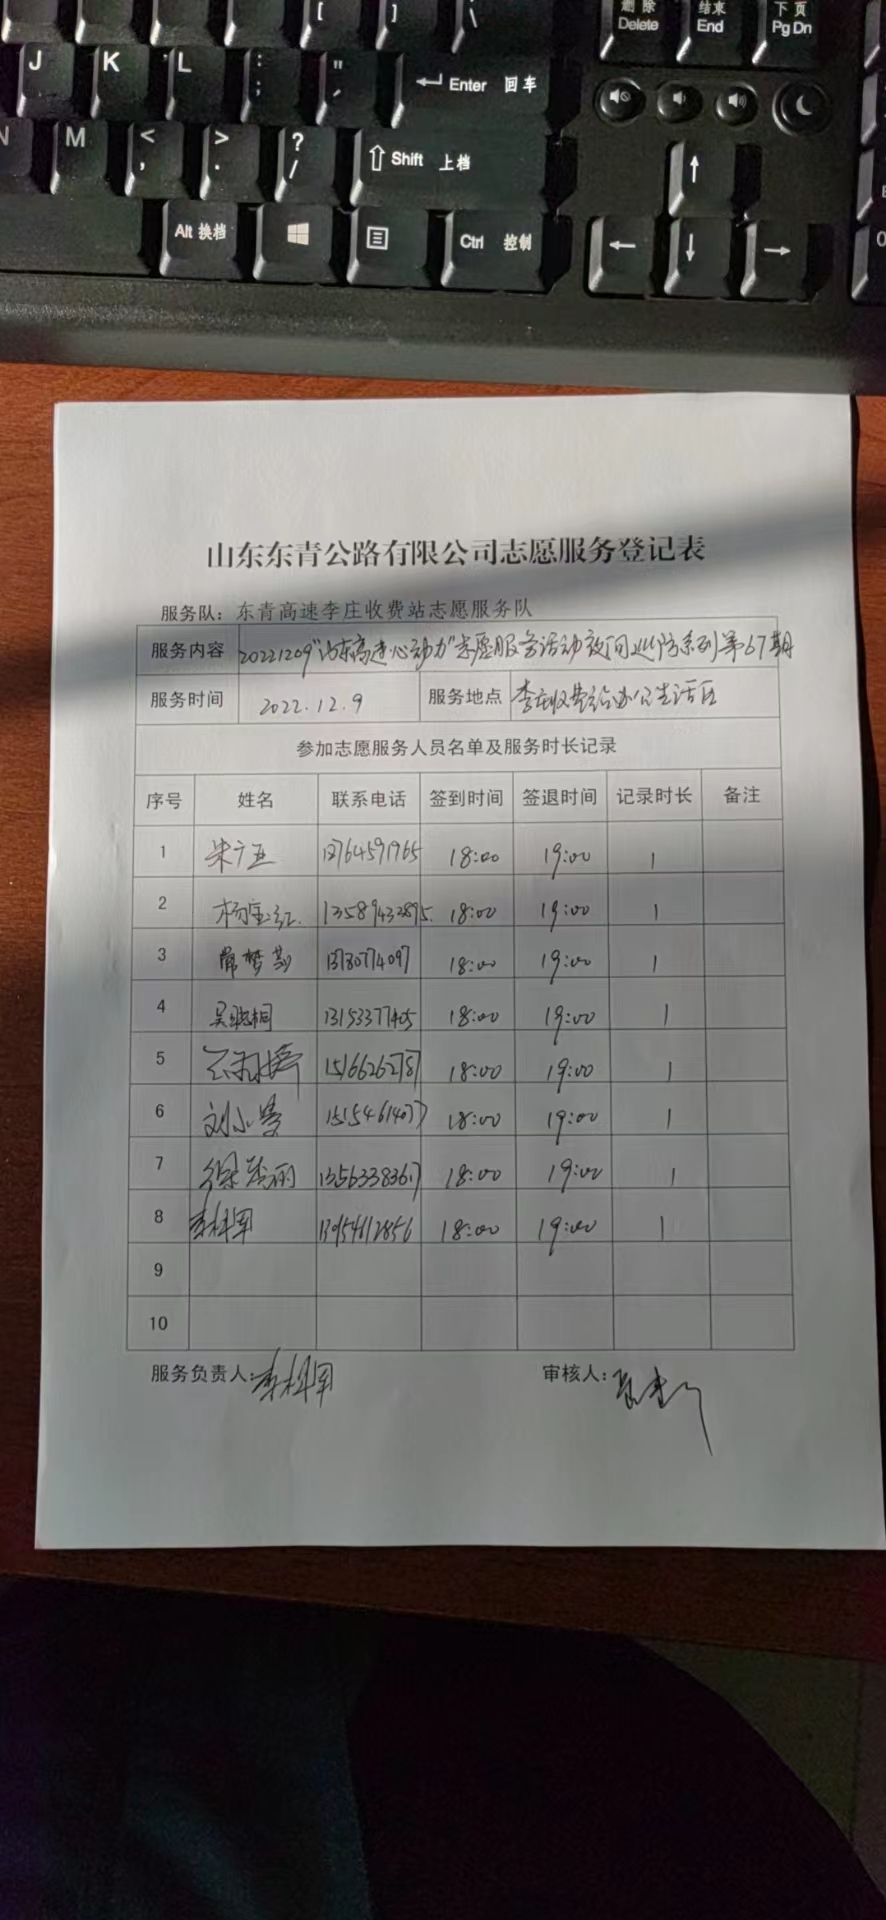 [ ] \
删除 Delete 结束 End 下页 Pg Dn
J K L : ; " ' Enter 回车
N M < , > . ? / Shift 上档
Alt 换档 Ctrl 控制 0
山东东青公路有限公司志愿服务登记表
服务队：东青高速李庄收费站志愿服务队
服务内容 20221209"山东高速心动力"志愿服务活动夜间巡防系列第67期
服务时间 2022.12.9 服务地点 李庄收费站办公生活区
参加志愿服务人员名单及服务时长记录
序号 姓名 联系电话 签到时间 签退时间 记录时长 备注
1 13764591965 18:00 19:00 1
2 杨宝红 13589432895 18:00 19:00 1
3 18:00 19:00 1
4 吴晓桐 13153377405 18:00 19:00 1
5 15166262787 18:00 19:00 1
6 刘小雪 15154614077 18:00 19:00 1
7 徐秀丽 13563383617 18:00 19:00 1
8 李科军 13954612856 18:00 19:00 1
9
10
服务负责人：李科军 审核人：